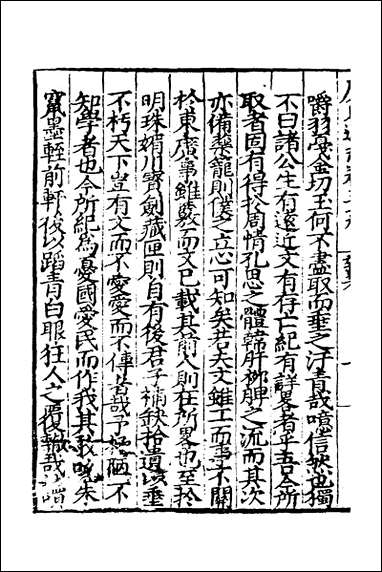 爵羽吳金切玉何不盡取而垂之汗青哉噫信然也獨
不曰諸公生有遠近文有存亡紀有詳畧者乎吾今所
取者固有得於周情孔思之體韓肝柳脾之流而其次
亦備藥籠則僕之立心可知矣若夫文雖工而事不關
於東廣事雖蘩而文已載其前人則在所畧也至於
明珠媚川寶劍藏匣則自有後君子補缺拾遺以垂
不朽天下豈有文而不愛愛而不傳者哉予陋不
知學者也今所紀為憂國愛民而作我其我哉朱
竄墨輊前軒後以蹈青白眼狂人之覆轍哉嘻